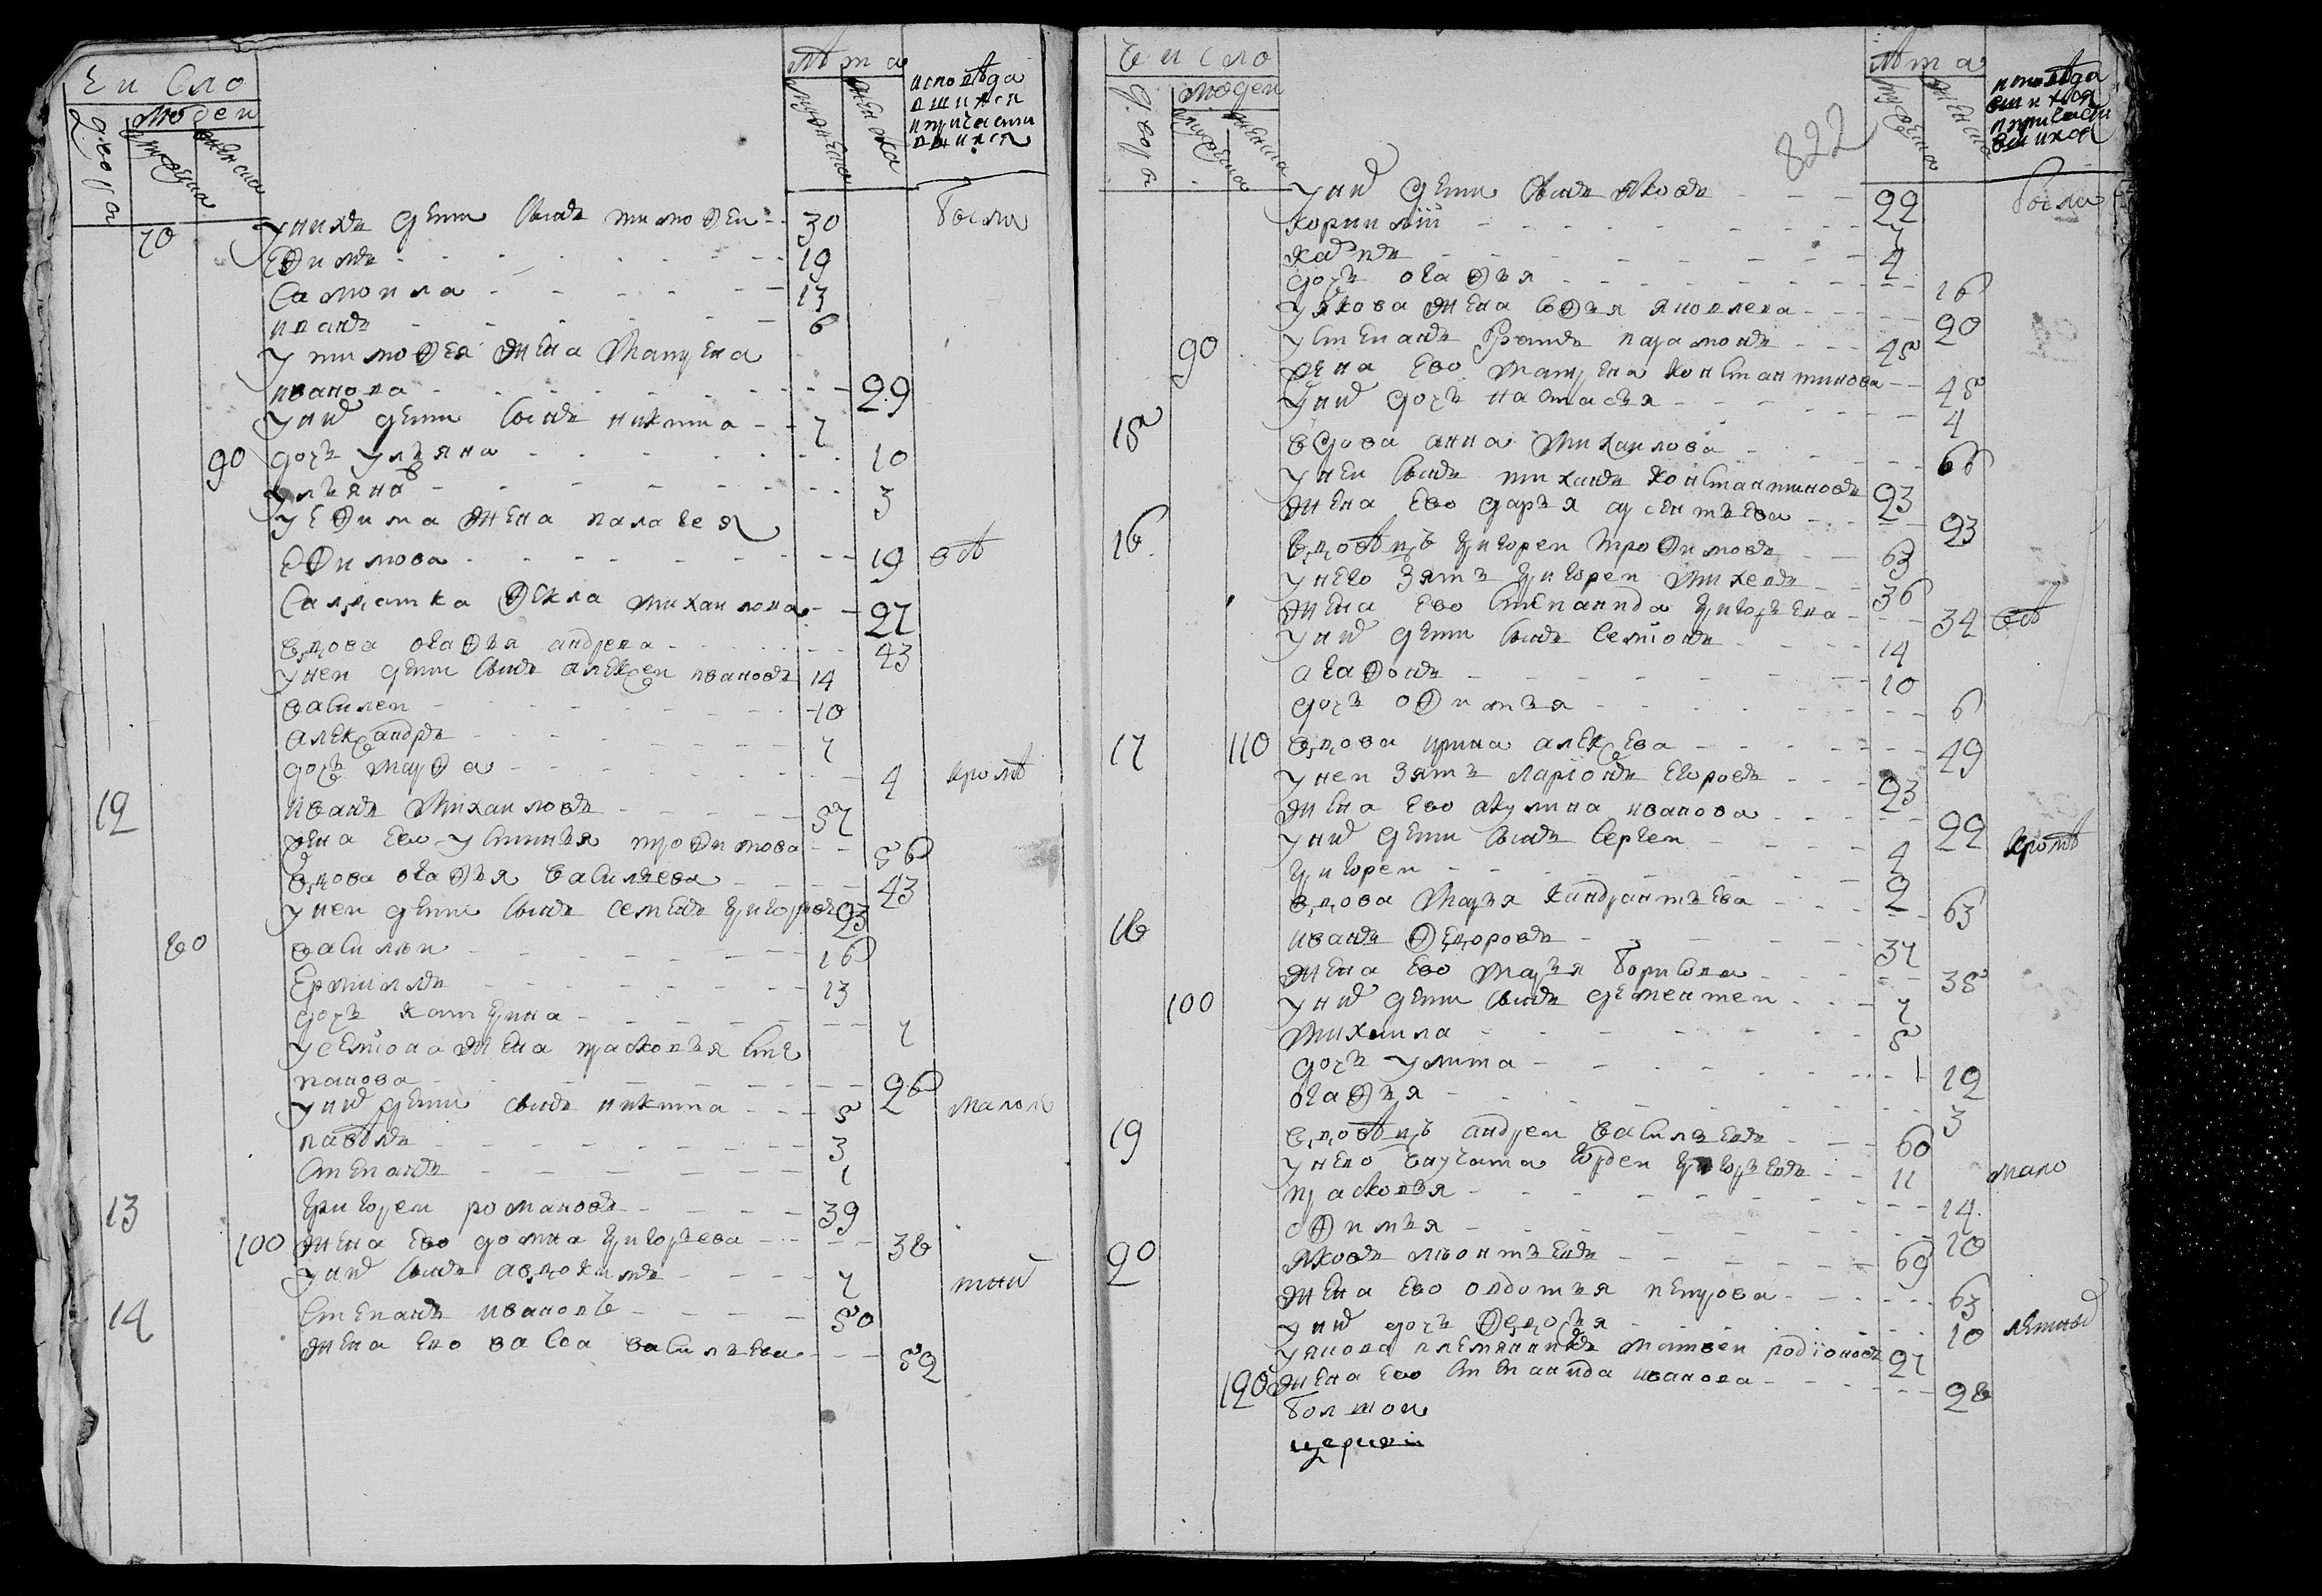 Число
людей
двор
мужеска
женска
лѣта
мужеска
женска
исповѣда
вшихся
и причасти
вшихся
70 у нихъ дети сынъ тимофеи 30 были
Ефимъ 19
Самоила 13
иванъ 6
у тимофея жена Матрена
иванова 29
у них дети сынъ никита 7
90 дочь ульяна 10
ульяна 3
у ефима жена палагея
ефимова 19
Салдатка Фекла михаилова 27
вдова огафья андрева 43
у неи дети сынъ алексеи ивановъ 14
василеи 10
александръ 7
дочь марфа 4
12 иванъ Михаиловъ 57
жена ево устинья трофимова 56
вдова огафья василъева 43
у неи дети сынъ семенъ григорьевъ 23
80 василеи 16
Ермилъ 13
дочь катерина 7
у семиона жена прасковья сте
панова 26
у них дети сынъ никита 5
павѣлъ 3
степанъ 1
13 григореи романовъ 39
100 жена ево домна григорьева 38
у них сынъ авдокимъ 7
14 Степанъ ивановъ 50
жена ево васса васильева 52
Число
людей
двор
мужеска
женска
822
лѣта
мужеска
женска
исповѣда
вшихся
и причасти
вшихся
у них дети сынъ яковъ 22 были
корнилiй 7
карпъ 4
дочь огафья 16
у якова жена софья яковлева 20
90 у степана братъ парамонъ 45
жена ево матрена константинова 45
у них дочь настасья 4
15 вдова анна михаилова 66
у неи сынъ тиханъ константиновъ 23
жена ево дарья арсентьева 23
16 вдовѣцъ григореи трофимовъ 63
у нево зять григореи михеевъ 36
жена ево степанида григорьева 34
у них дети сынъ семiонъ 14
агафонъ 10
дочь офимья 6
17 110 вдова ирина алексева 49
у неи зять ларiонъ егоровъ 23
жена ево акулина иванова 22
у них дети сынъ сергеи 4
григореи 2
вдова марья кандратьева 63
18 иванъ Федоровъ 37
жена ево марья борисова 35
100 у них дети сынъ дементеи 7
михаила 5
дочь улита 12
огафья 3
19 вдовѣцъ андреи васильевъ 60
у нево внучата гордеи григорьевъ 11 мало
прасковья 14
офимья 10
20 яковъ леонтьевъ 69
жена ево овдотья петрова 63
у них дочь федосья 10
у якова племянникъ матвеи родiоновъ 27
120 жена ево степанида иванова 28
болшои
церкви